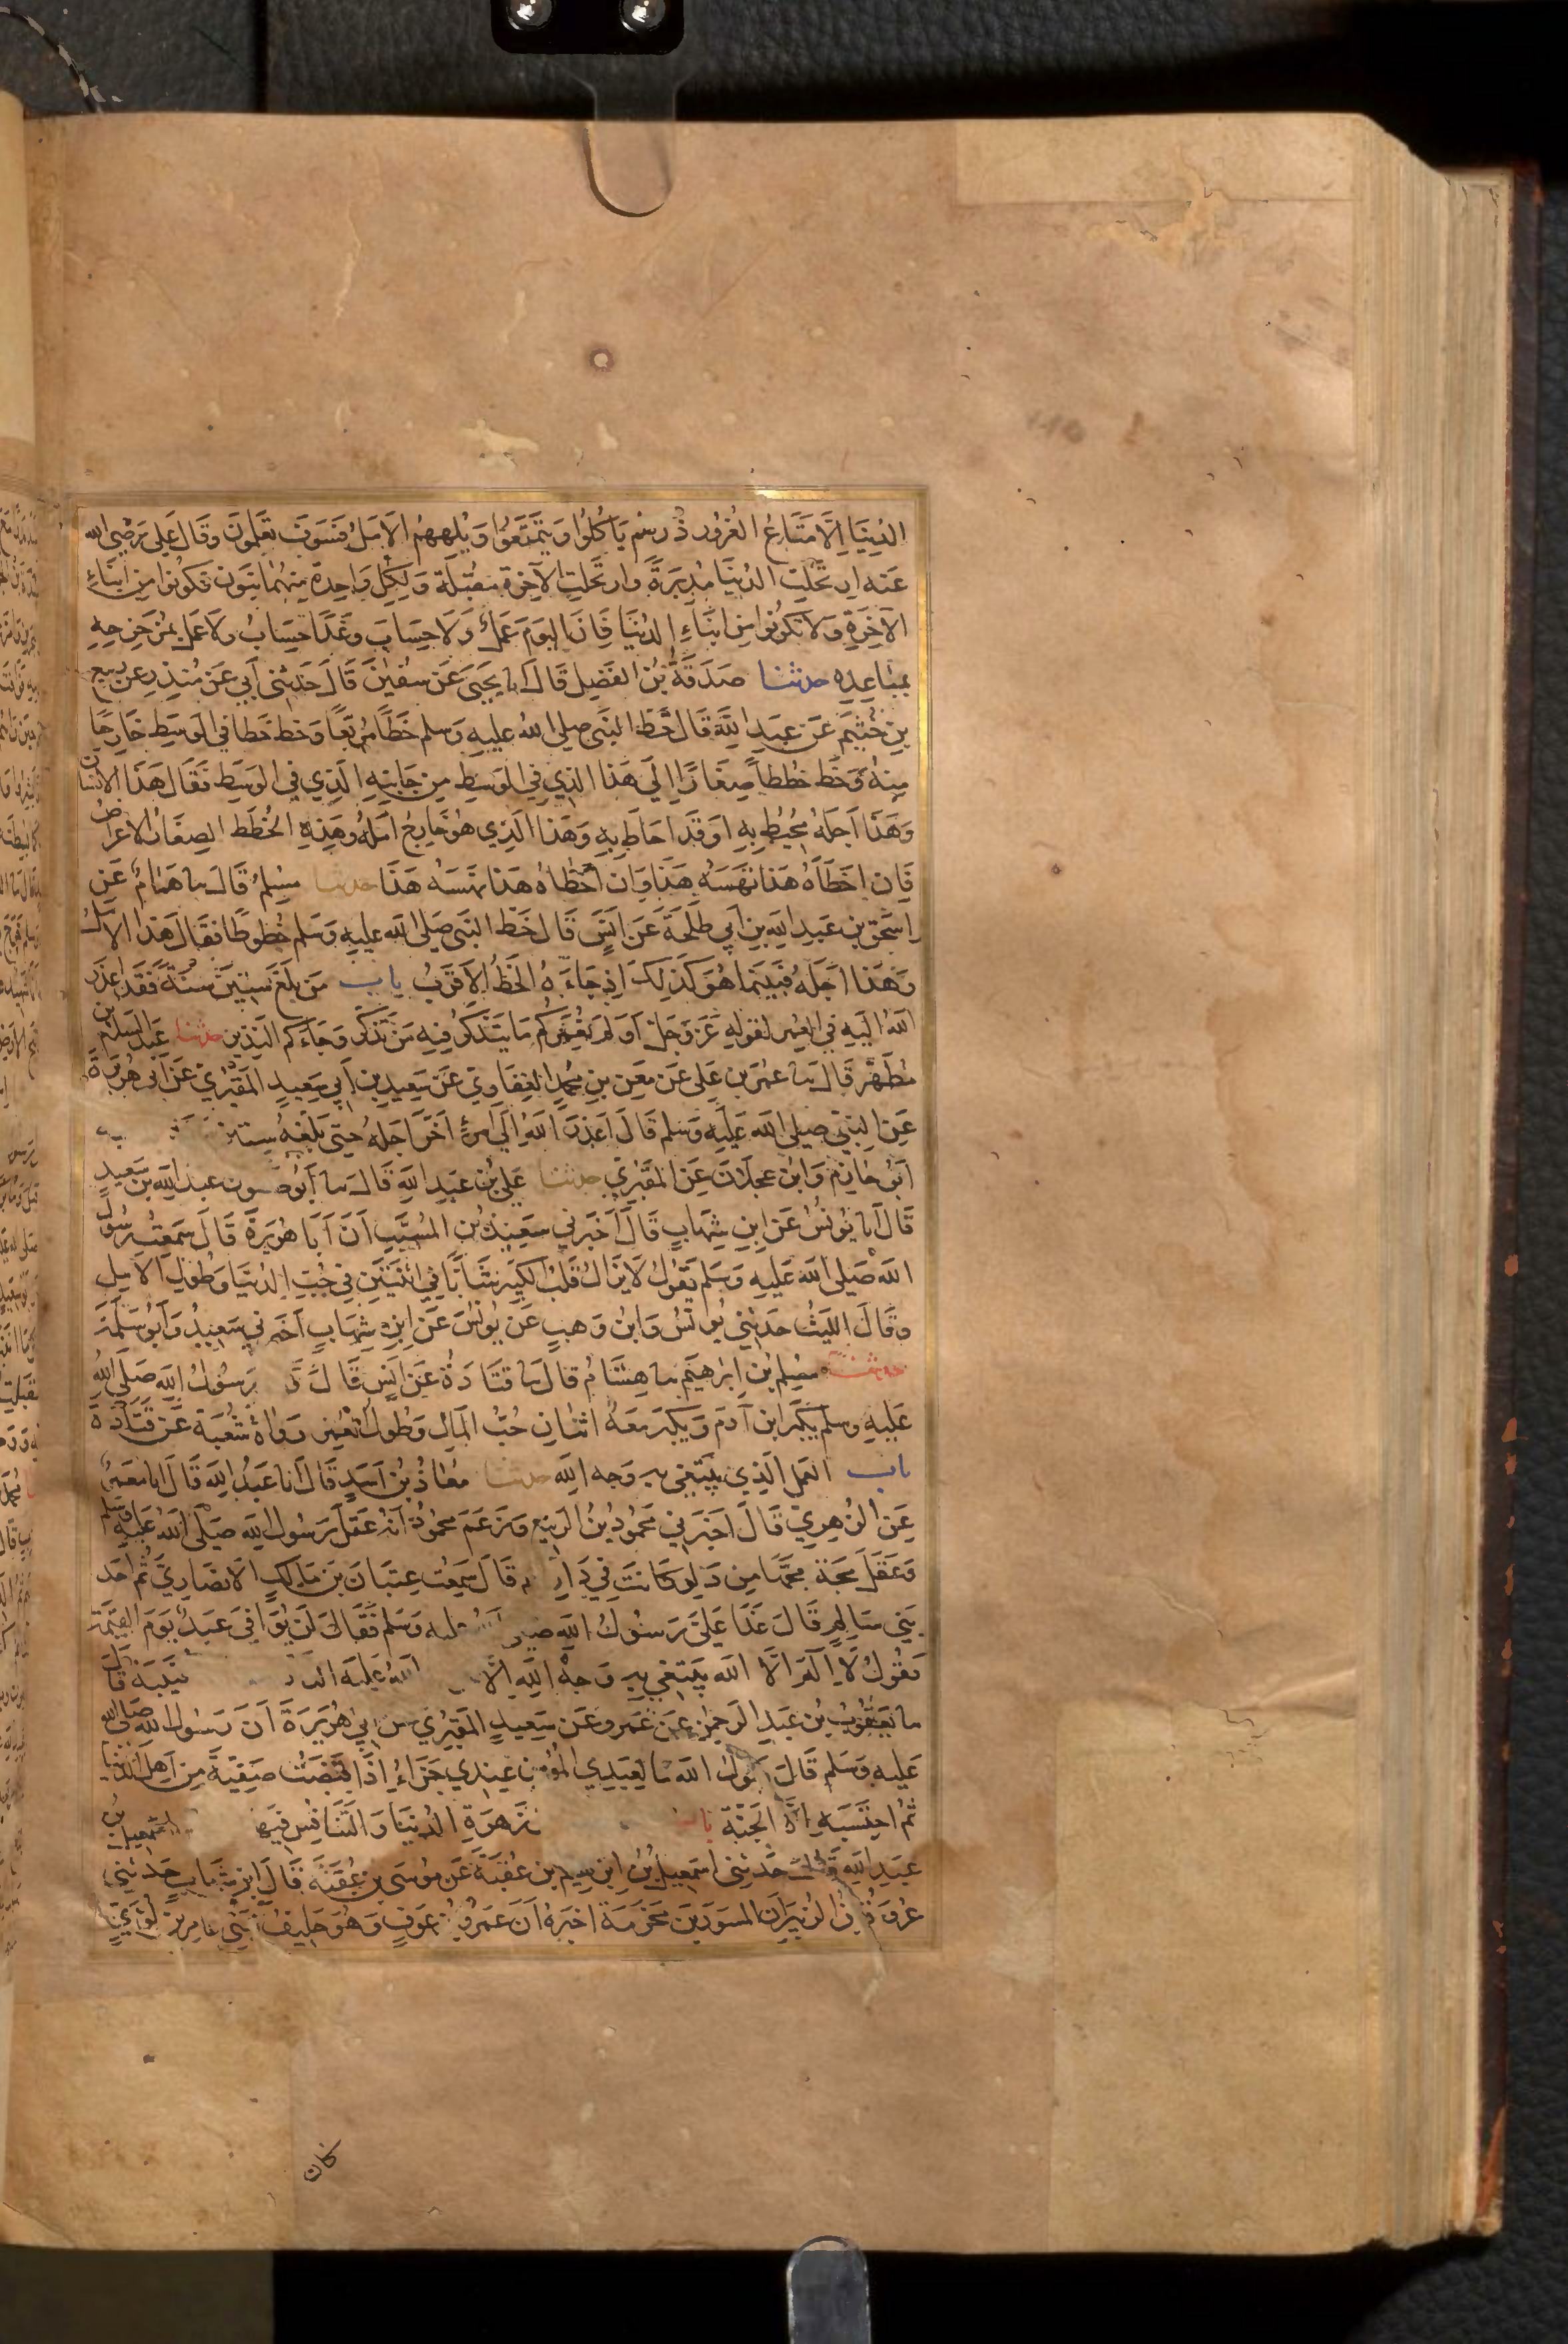 الدنيا الا متاع الغرور ذرهم ياكلوا ويتمتعوا ويلههم الامل فسوف تعلمون وقال علي رضي الله
عنه ارتحلت الدنيا مدبرة وارتحلت الاخرة مقبلة ولكل واحدة منهما بنون فكونوا من ابناء
الاخرة ولا تكونوا من ابناء الدنيا فان اليوم عمل ولا حساب وغدا حساب ولا عمل بمزحزحه
بمباعده حدثنا صدقة بن الفضل قال انا يحيى عن سفين قال حدثني ابي عن منذر عن ربيع
بن خثيم عن عبد الله قال خط النبي صلى الله عليه وسلم خطا مربعا وخط خطا في الوسط خارجا
منه وخط خططا صغارا الى هذا الذي في الوسط من جانبه الذي في الوسط فقال هذا الانسان
وهذا اجله محيط به او قد احاط به وهذا الذي هو خارج امله وهذه الخطط الصغار الاعراض
فان اخطاه هذا نهسه هذا وان اخطاه هذا نهسه هذا حدثنا مسلم قال نا همام عن
اسحق بن عبد الله بن ابي طلحة عن انس قال خط النبي صلى الله عليه وسلم خطوطا فقال هذا الامل
وهذا اجله فبينما هو كذلك اذ جاءه الخط الاقرب باب من بلغ ستين سنة فقد اعذر
الله اليه في العمر لقوله عز وجل اولم نعمركم ما يتذكر فيه من تذكر وجاءكم النذير حدثنا عبد السلم بن
مطهر قال نا عمر بن علي عن معن بن محمد الغفاري عن سعيد بن ابي سعيد المقبري عن ابي هريرة
عن النبي صلى الله عليه وسلم قال اعذر الله الى امرئ اخر اجله حتى بلغه ستين
ابو حازم وابن عجلان عن المقبري حدثنا علي بن عبد الله قال نا ابو صفون عبد الله بن سعيد
قال انا يونس عن ابن شهاب قال اخبرني سعيد بن المسيب ان ابا هريرة قال سمعت رسول
الله صلى الله عليه وسلم يقول لا يزال قلب الكبير شابا في اثنتين في حب الدنيا وطول الامل
وقال الليث حدثني يونس وابن وهب عن يونس عن ابن شهاب اخبرني سعيد وابو سلمة
حدثنا مسلم بن ابرهيم نا هشام قال نا قتادة عن انس قال رسول الله صلى الله
عليه وسلم يكبر ابن آدم ويكبر معه اثنان حب المال وطول العمر رواه شعبة عن قتادة
باب العمل الذي يبتغى به وجه الله حدثنا معاذ بن اسد قال انا عبد الله قال انا معمر
عن الزهري قال اخبرني محمود بن الربيع وزعم محمود انه عقل رسول الله صلى الله عليه وسلم
وعقل مجة مجها من دلو كانت في دارهم قال سمعت عتبان بن مالك الانصاري ثم احد
بني سالم قال غدا علي رسول الله صلى الله عليه وسلم فقال لن يوافي عبد يوم القيمة
يقول لا اله الا الله يبتغي به وجه الله الا الله عليه النار قتيبة قال
نا يعقوب بن عبد الرحمن عن عمرو عن سعيد المقبري عن ابي هريرة ان رسول الله صلى الله
عليه وسلم قال يقول الله ما لعبدي المؤمن عندي جزاء اذا قبضت صفية من اهل الدنيا
ثم احتسبه الا الجنة باب زهرة الدنيا والتنافس فيها اسمعيل بن
عبد الله قال حدثني اسمعيل بن ابرهيم بن عقبة عن موسى بن عقبة قال ابن شهاب حدثني
عروة بن الزبير ان المسور بن مخرمة اخبره ان عمرو بن عوف وهو حليف لبني عامر بن لؤي
كان